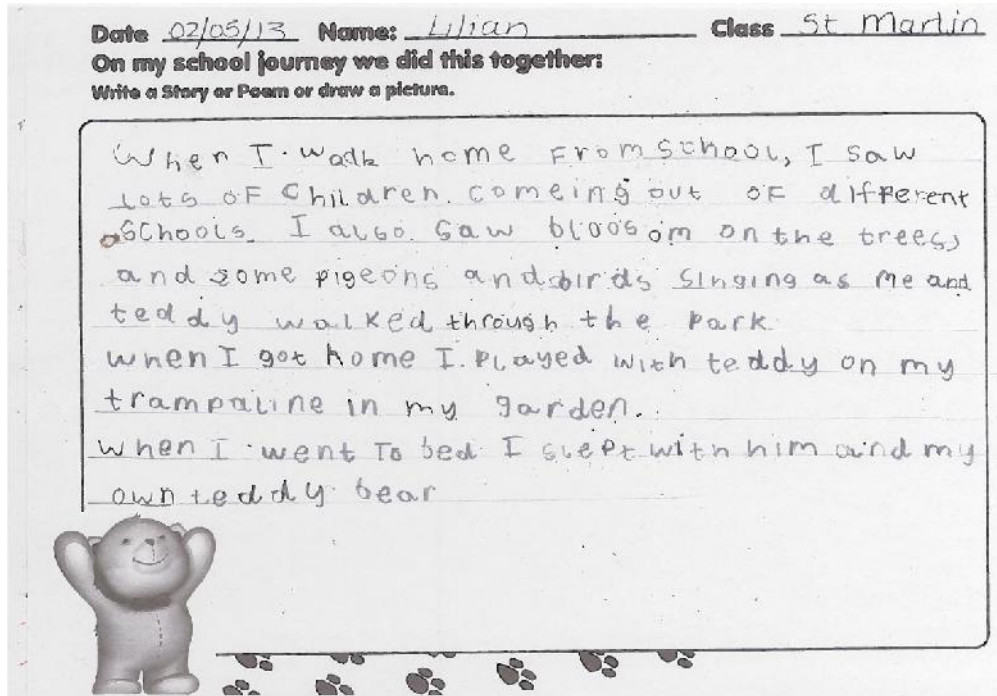 Date 02/05/13 Name: Lilian Class St Martin
On my school journey we did this together:
Write a Story or Poem or draw a picture.
When I walk home From school, I saw
lots of children comeing out of different
schools. I also saw bloosom on the trees,
and some pigeons and birds singing as me and
teddy walked through the park.
when I got home I played with teddy on my
trampaline in my garden.
when I went To bed I slept with him and my
own teddy bear